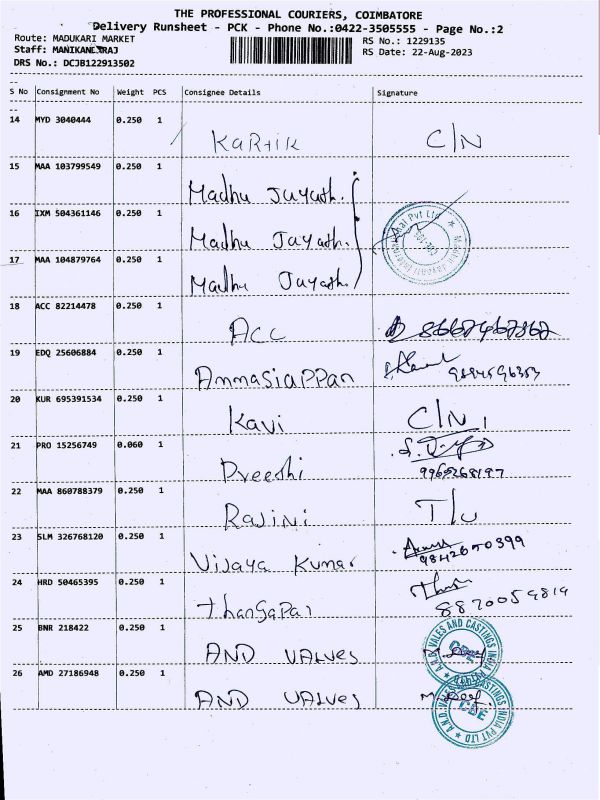 THE PROFESSIONAL COURIERS, COIMBATORE
Delivery Runsheet - PCK - Phone No.:0422-3505555 - Page No.:2
Route: MADUKARI MARKET
RS No.: 1229135
Staff: MANIKANDRAJ
RS Date: 22-Aug-2023
DRS No.: DCJB122913502
S No Consignment No Weight PCS Consignee Details Signature
14 MYD 3040444 0.250 1
Kartik C/N
15 MAA 103799549 0.250 1
Madhu Jayath.
16 IXM 504361146 0.250 1
Madhu Jayath.
17 MAA 104879764 0.250 1
Madhu Jayath.
18 ACC 82214478 0.250 1
ACC 8667467867
19 EDQ 25606884 0.250 1
Ammasiappan
20 KUR 695391534 0.250 1
Kavi C/N
21 PRO 15256749 0.060 1
Preethi
22 MAA 860788379 0.250 1
Rajini T/U
23 SLM 326768120 0.250 1
Vijaya Kumar
24 HRD 50465395 0.250 1
Thangapar 8870059819
25 BNR 218422 0.250 1
AND VALVES
A.N.D. VALES AND CASTINGS INDIA PVT LTD
CBE
26 AMD 27186948 0.250 1
AND VALVES
A.N.D. VALES AND CASTINGS INDIA PVT LTD
CBE